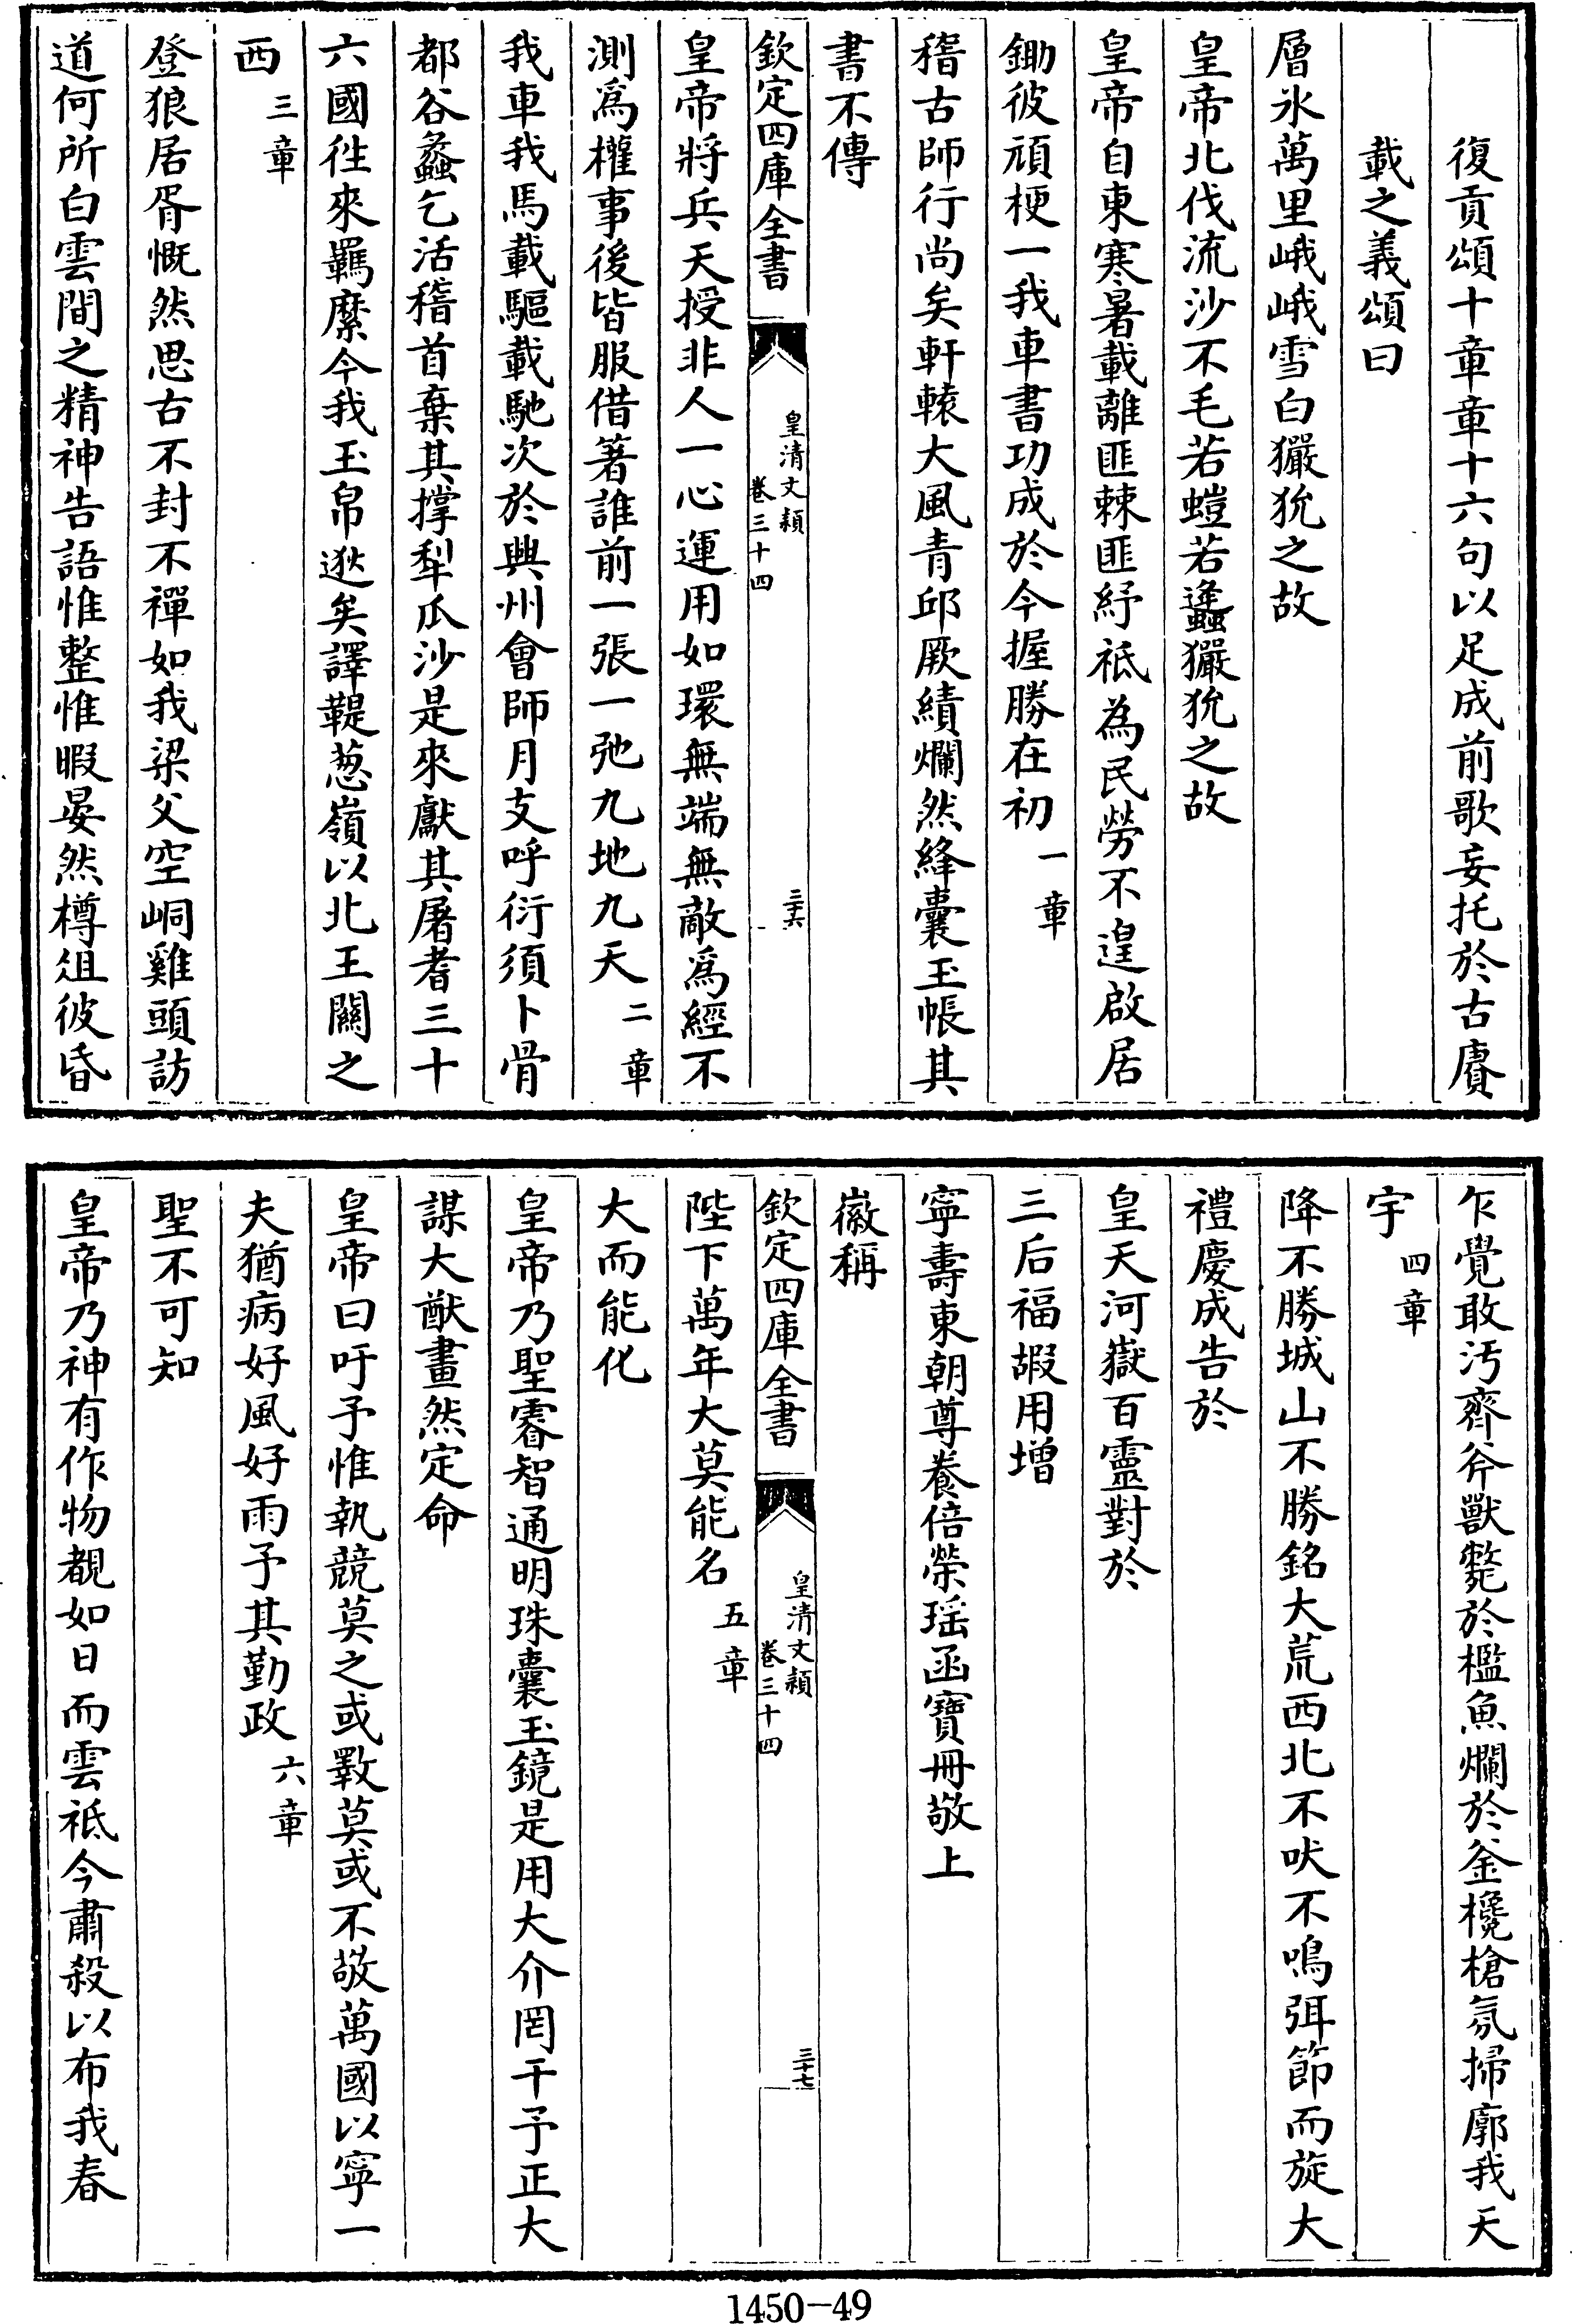 復貢頌十章章十六句以足成前歌妄托於古賡
載之義頌曰
層氷萬里峨峨雪白玁狁之故
皇帝北伐流沙不毛若螘若蠭玁狁之故
皇帝自東寒暑載離匪棘匪紓祗為民勞不遑啟居
鋤彼頑梗一我車書功成於今握勝在初一章
稽古師行尚矣軒轅大風青邱厥績爛然絳囊玉帳其
書不傳
欽定四庫全書 皇清文穎 卷三十四 三十六
皇帝將兵天授非人一心運用如環無端無敵爲經不
測爲權事後皆服借箸誰前一張一弛九地九天二章
我車我馬載驅載馳次於興州會師月支呼衍須卜骨
都谷蠡乞活稽首棄其撑犁瓜沙是來獻其屠耆三十
六國徃來羈縻今我玉帛逖矣譯鞮葱嶺以北王關之
西三章
登狼居胥慨然思古不封不禪如我梁父空峒雞頭訪
道何所白雲間之精神告語惟整惟暇晏然樽俎彼昏
乍覺敢汚齊斧獸斃於檻魚爛於釜欃槍氛掃廓我天
宇四章
降不勝城山不勝銘大荒西北不吠不鳴弭節而旋大
禮慶成告於
皇天河嶽百靈對於
三后福嘏用增
寧壽東朝尊養倍榮瑶函寶冊敬上
徽稱
欽定四庫全書 皇清文穎 卷三十四 三十七
陛下萬年大莫能名五章
大而能化
皇帝乃聖睿智通明珠囊玉鏡是用大介罔干予正大
謀大猷畫然定命
皇帝曰吁予惟執競莫之或斁莫或不敬萬國以寧一
夫猶病好風好雨予其勤政六章
聖不可知
皇帝乃神有作物覩如日而雲祗今肅殺以布我春
1450-49